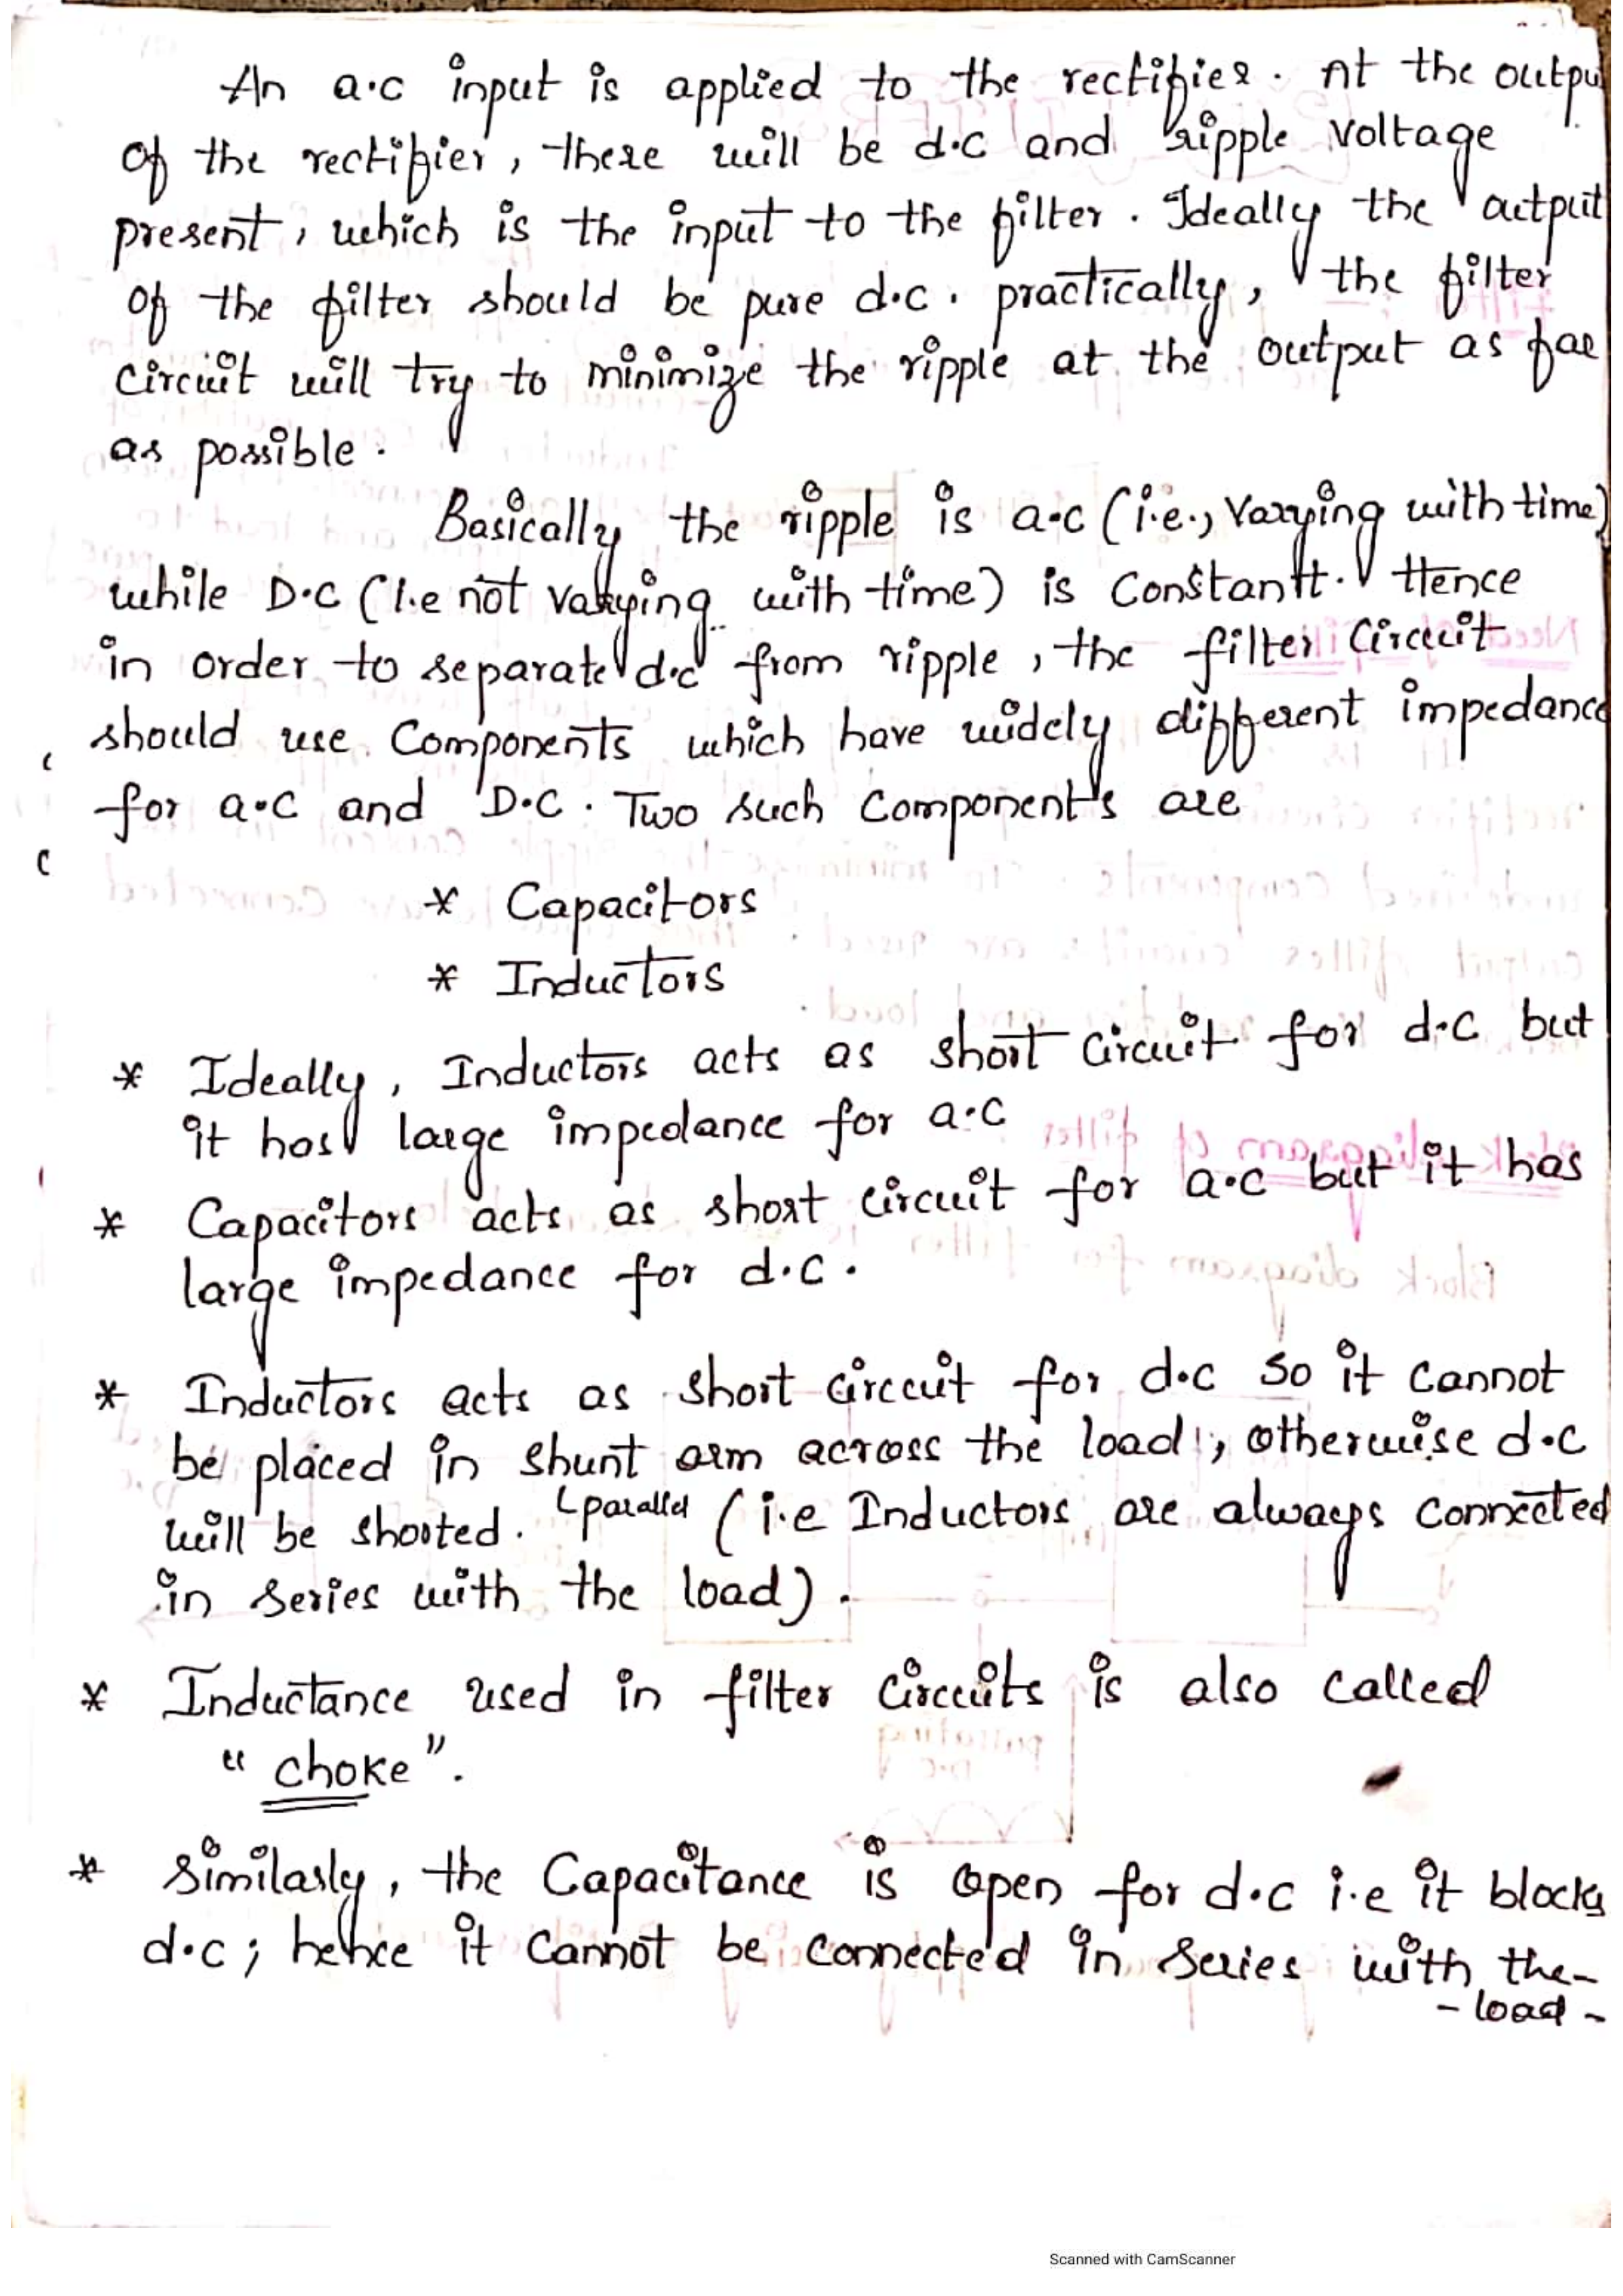 An a.c input is applied to the rectifier. At the outpu
of the rectifier, there will be d.c and ripple voltage
present, which is the input to the filter. Ideally the output
of the filter should be pure d.c. practically, the filter
circuit will try to minimize the ripple at the output as far
as possible.
Basically the ripple is a.c (i.e., varying with time)
while D.C (i.e not varying with time) is Constantt. Hence
in order to separate d.c from ripple, the filter Circuit
should use Components which have widely different impedance
for a.c and D.C. Two such Components are
* Capacitors
* Inductors
* Ideally, Inductors acts as short Circuit for d.c but
it has large impedance for a.c
* Capacitors acts as short circuit for a.c but it has
large impedance for d.c.
* Inductors acts as short circuit for d.c So it Cannot
be placed in shunt arm across the load, otherwise d.c
will be shorted. (parallel (i.e Inductors are always Connected
in series with the load).
* Inductance used in filter Circuits is also Called
"choke".
* Similarly, the Capacitance is open for d.c i.e it blocks
d.c; hence it Cannot be Connected in Series with the-
-load-
Scanned with CamScanner